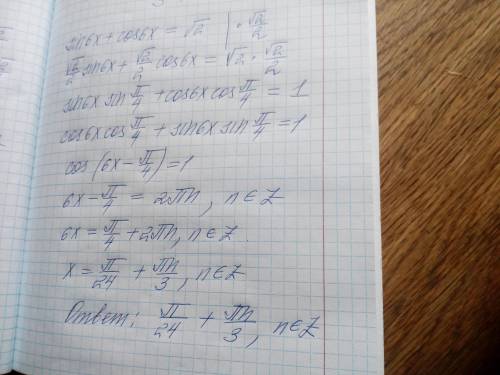 sin6x + cos6x = √2 | · √2/2
√2/2 sin6x + √2/2 cos6x = √2 · √2/2
sin6x sin π/4 + cos6x cos π/4 = 1
cos6x cos π/4 + sin6x sin π/4 = 1
cos (6x - π/4) = 1
6x - π/4 = 2πn, n ∈ Z
6x = π/4 + 2πn, n ∈ Z.
x = π/24 + πn/3, n ∈ Z
Ответ: π/24 + πn/3, n ∈ Z